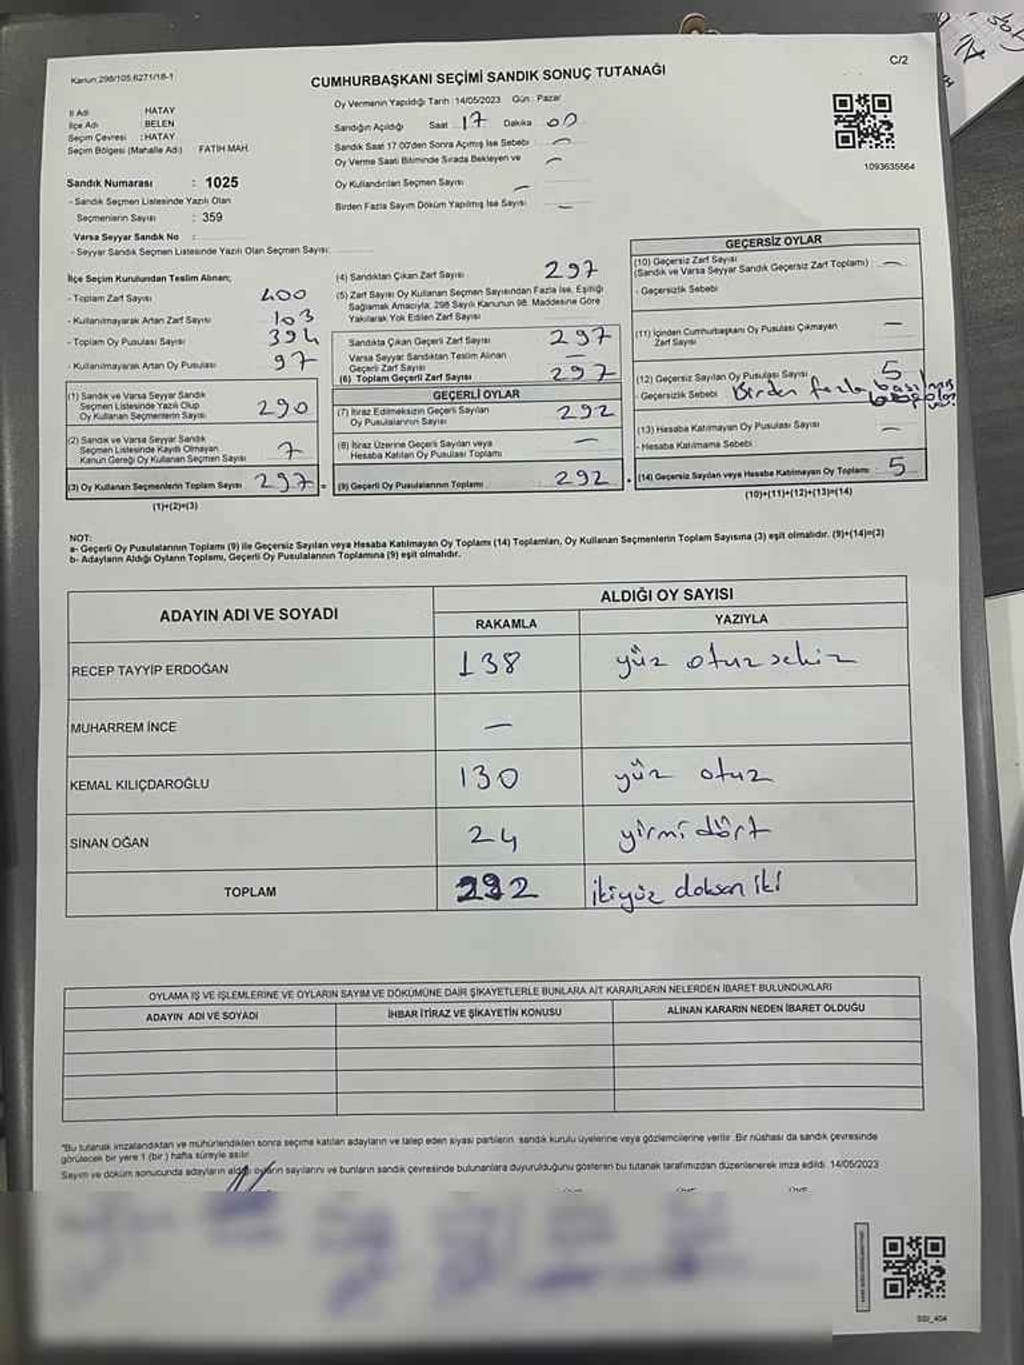 Kanun:298/105,6271/18-1
CUMHURBAŞKANI SEÇİMİ SANDIK SONUÇ TUTANAĞI
C/2
İl Adı : HATAY
İlçe Adı : BELEN
Seçim Çevresi : HATAY
Seçim Bölgesi (Mahalle Adı) : FATİH MAH.
Sandık Numarası : 1025
- Sandık Seçmen Listesinde Yazılı Olan
Seçmenlerin Sayısı : 359
Varsa Seyyar Sandık No :
- Seyyar Sandık Seçmen Listesinde Yazılı Olan Seçmen Sayısı:
Oy Vermenin Yapıldığı Tarih : 14/05/2023 Gün : Pazar
Sandığın Açıldığı Saat 17 Dakika 00
Sandık Saat 17:00'den Sonra Açılmış İse Sebebi : —
Oy Verme Saati Bitiminde Sırada Bekleyen ve —
Oy Kullandırılan Seçmen Sayısı —
Birden Fazla Sayım Döküm Yapılmış İse Sayısı —
1093635564
İlçe Seçim Kurulundan Teslim Alınan;
- Toplam Zarf Sayısı 400
- Kullanılmayarak Artan Zarf Sayısı 103
- Toplam Oy Pusulası Sayısı 394
- Kullanılmayarak Artan Oy Pusulası 97
(1) Sandık ve Varsa Seyyar Sandık
Seçmen Listesinde Yazılı Olup
Oy Kullanan Seçmenlerin Sayısı 290
(2) Sandık ve Varsa Seyyar Sandık
Seçmen Listesinde Kayıtlı Olmayan
Kanun Gereği Oy Kullanan Seçmen Sayısı 7
(3) Oy Kullanan Seçmenlerin Toplam Sayısı 297 =
(1)+(2)=(3)
(4) Sandıktan Çıkan Zarf Sayısı 297
(5) Zarf Sayısı Oy Kullanan Seçmen Sayısından Fazla İse, Eşitliği
Sağlamak Amacıyla; 298 Sayılı Kanunun 98. Maddesine Göre
Yakılarak Yok Edilen Zarf Sayısı
Sandıkta Çıkan Geçerli Zarf Sayısı 297
Varsa Seyyar Sandıktan Teslim Alınan
Geçerli Zarf Sayısı —
(6) Toplam Geçerli Zarf Sayısı 297
GEÇERLİ OYLAR
(7) İtiraz Edilmeksizin Geçerli Sayılan
Oy Pusulasının Sayısı 292
(8) İtiraz Üzerine Geçerli Sayılan veya
Hesaba Katılan Oy Pusulası Toplamı —
(9) Geçerli Oy Pusulalarının Toplamı 292
GEÇERSİZ OYLAR
(10) Geçersiz Zarf Sayısı
(Sandık ve Varsa Seyyar Sandık Geçersiz Zarf Toplamı) —
- Geçersizlik Sebebi :
(11) İçinden Cumhurbaşkanı Oy Pusulası Çıkmayan
Zarf Sayısı —
(12) Geçersiz Sayılan Oy Pusulası Sayısı 5
- Geçersizlik Sebebi : Birden fazla basılmış
(13) Hesaba Katılmayan Oy Pusulası Sayısı —
- Hesaba Katılmama Sebebi :
(14) Geçersiz Sayılan veya Hesaba Katılmayan Oy Toplamı 5
(10)+(11)+(12)+(13)=(14)
NOT:
a- Geçerli Oy Pusulalarının Toplamı (9) ile Geçersiz Sayılan veya Hesaba Katılmayan Oy Toplamı (14) Toplamları, Oy Kullanan Seçmenlerin Toplam Sayısına (3) eşit olmalıdır. (9)+(14)=(3)
b- Adayların Aldığı Oyların Toplamı, Geçerli Oy Pusulalarının Toplamına (9) eşit olmalıdır.
ADAYIN ADI VE SOYADI
ALDIĞI OY SAYISI
RAKAMLA YAZIYLA
RECEP TAYYİP ERDOĞAN 138 yüz otuz sekiz
MUHARREM İNCE —
KEMAL KILIÇDAROĞLU 130 yüz otuz
SİNAN OĞAN 24 yirmi dört
TOPLAM 292 ikiyüz doksan iki
OYLAMA İŞ VE İŞLEMLERİNE VE OYLARIN SAYIM VE DÖKÜMÜNE DAİR ŞİKAYETLERLE BUNLARA AİT KARARLARIN NELERDEN İBARET BULUNDUKLARI
ADAYIN ADI VE SOYADI İHBAR İTİRAZ VE ŞİKAYETİN KONUSU ALINAN KARARIN NEDEN İBARET OLDUĞU
*Bu tutanak imzalandıktan ve mühürlendikten sonra seçime katılan adayların ve talep eden siyasi partilerin sandık kurulu üyelerine veya gözlemcilerine verilir. Bir nüshası da sandık çevresinde
görülecek bir yere 1 (bir) hafta süreyle asılır.
Sayım ve döküm sonucunda adayların aldığı oyların sayılarını ve bunların sandık çevresinde bulunanlara duyurulduğunu gösteren bu tutanak tarafımızdan düzenlenerek imza edildi. 14/05/2023
SSI_404